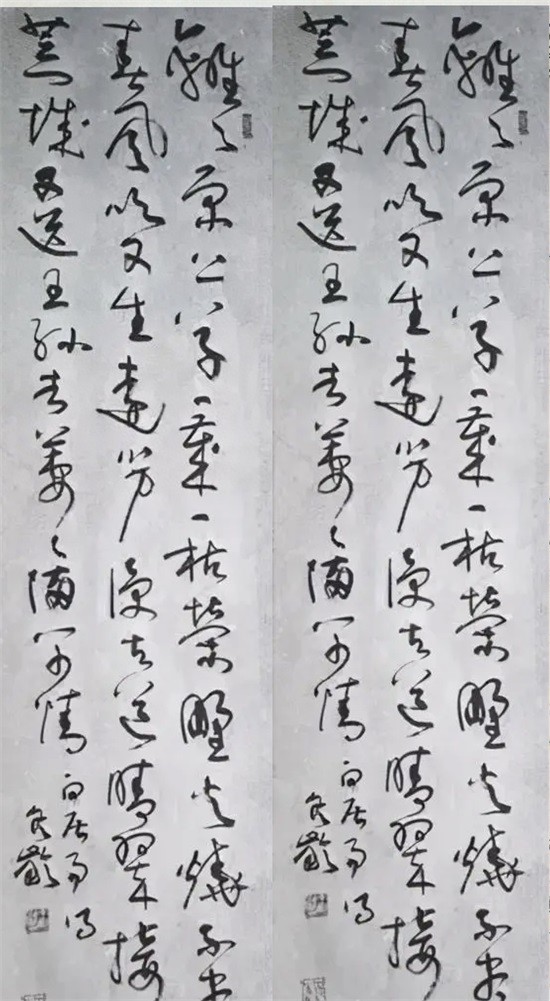 離々原上草一歲一枯榮野火燒不盡
春風吹又生遠芳侵古道晴翠接
荒城又送王孫去萋々滿別情
白居易
離々原上草一歲一枯榮野火燒不盡
春風吹又生遠芳侵古道晴翠接
荒城又送王孫去萋々滿別情
白居易